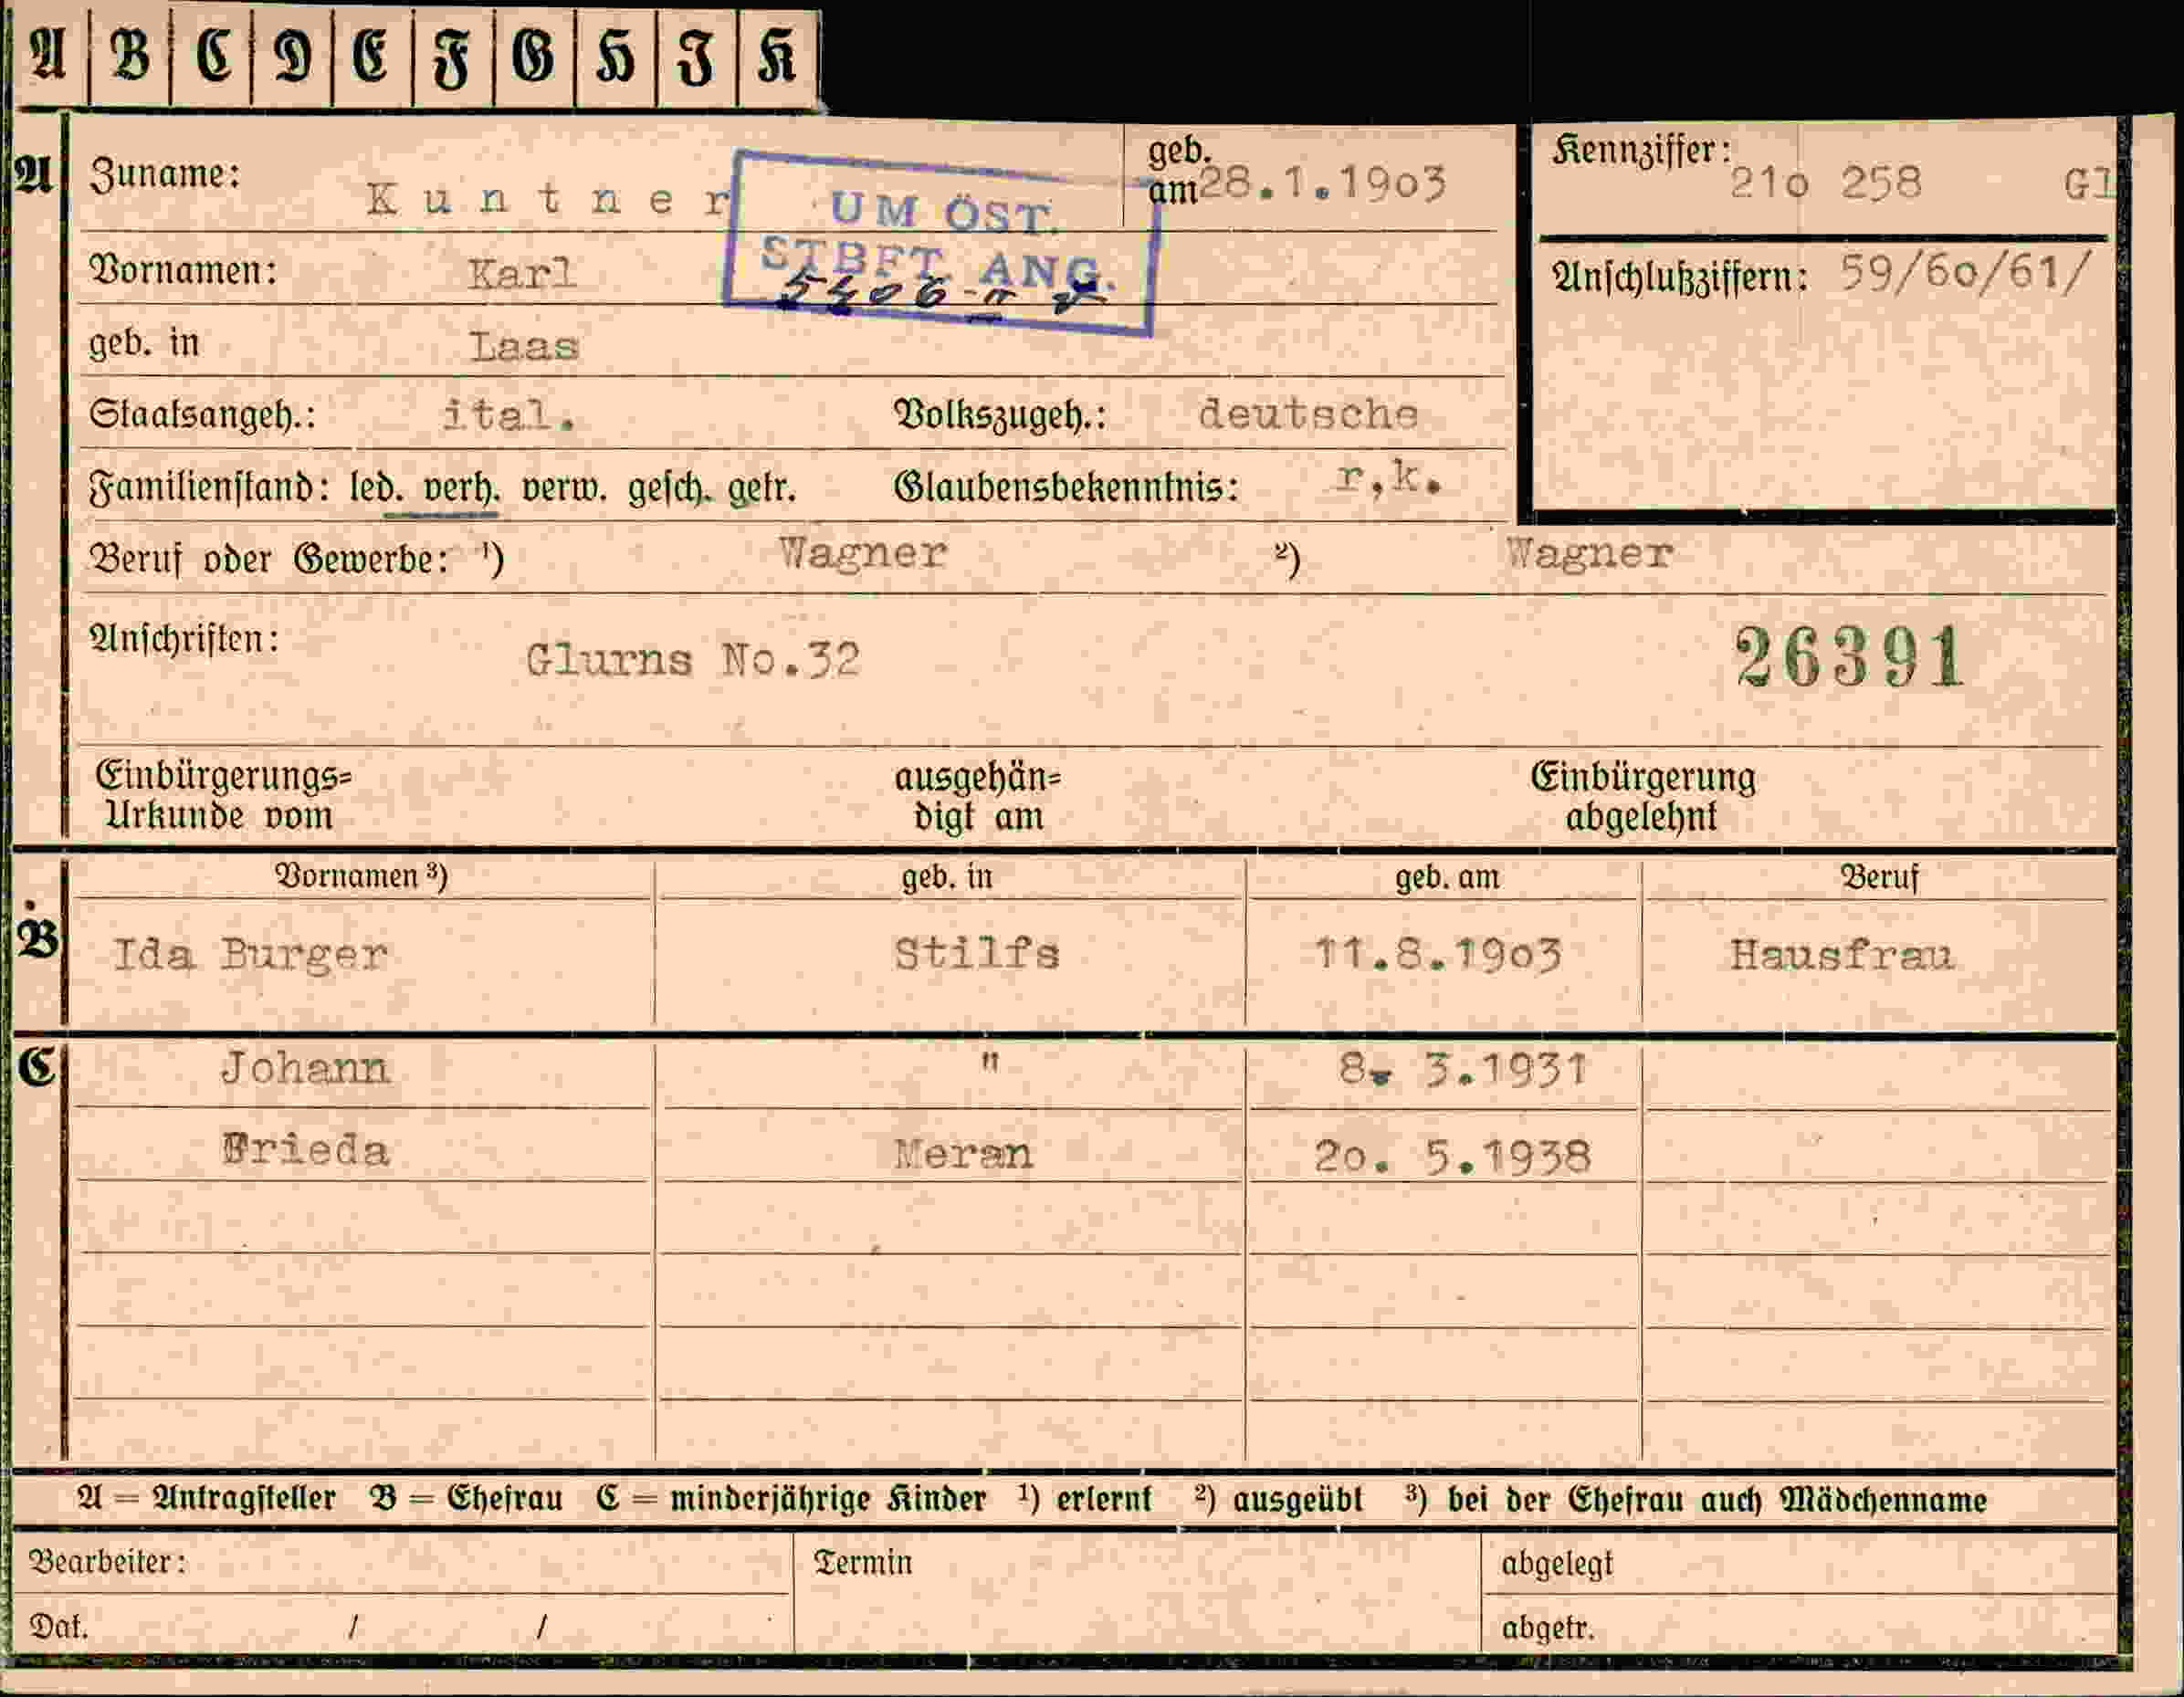 A B C D E F G H I K
A Zuname: Kuntner geb. am 28.1.19o3 Kennziffer: 21o 258 Gl
UM ÖST.
STBFT. ANG.
Vornamen: Karl
Anschlußziffern: 59/6o/61/
geb. in Laas
Staatsangeh.: ital. Volkszugeh.: deutsche
Familienstand: led. verh. verw. gesch. getr. Glaubensbekenntnis: r,k.
Beruf oder Gewerbe: ¹) Wagner ²) Wagner
Anschriften: Glurns No.32 26391
Einbürgerungs= ausgehän= Einbürgerung
Urkunde vom digt am abgelehnt
Vornamen ³) geb. in geb. am Beruf
B Ida Burger Stilfs 11.8.19o3 Hausfrau
C Johann " 8. 3.1931
Frieda Meran 2o. 5.1938
A = Antragsteller B = Ehefrau C = minderjährige Kinder ¹) erlernt ²) ausgeübt ³) bei der Ehefrau auch Mädchenname
Bearbeiter: Termin abgelegt
Dat. / / abgetr.